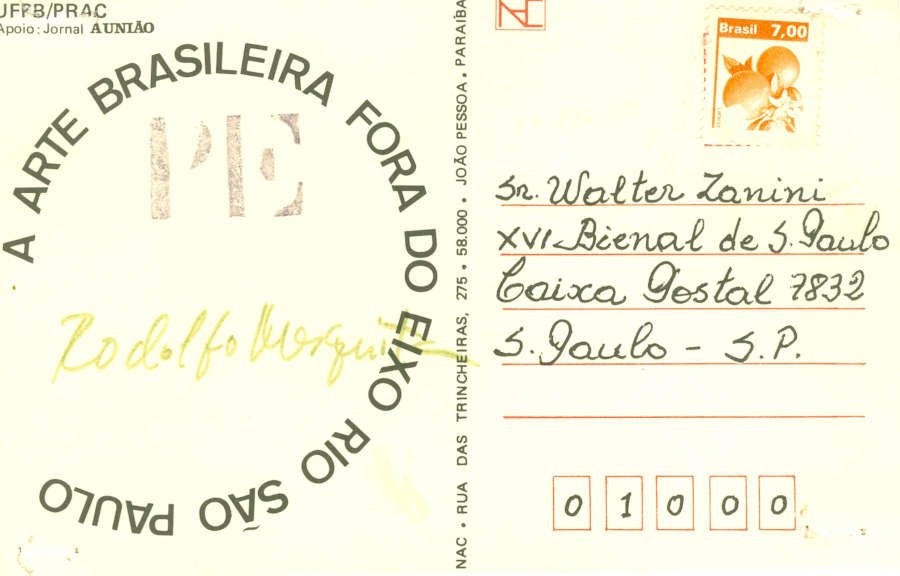 UFPB/PRAC
Apoio: Jornal A UNIÃO
A ARTE BRASILEIRA FORA DO EIXO RIO SÃO PAULO
PE
Rodolfo Mesquita
NAC • RUA DAS TRINCHEIRAS, 275 • 58.000 • JOÃO PESSOA • PARAÍBA
Brasil 7,00
Sr. Walter Zanini
XVI Bienal de S. Paulo
Caixa Postal 7832
S. Paulo - S.P.
0 1 0 0 0